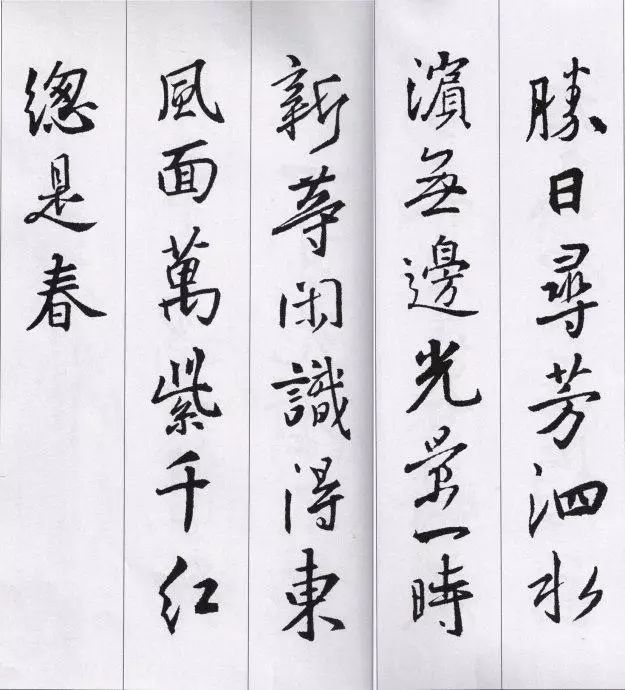 勝日尋芳泗水
濱無邊光景一時
新等闲識得東
風面萬紫千红
總是春